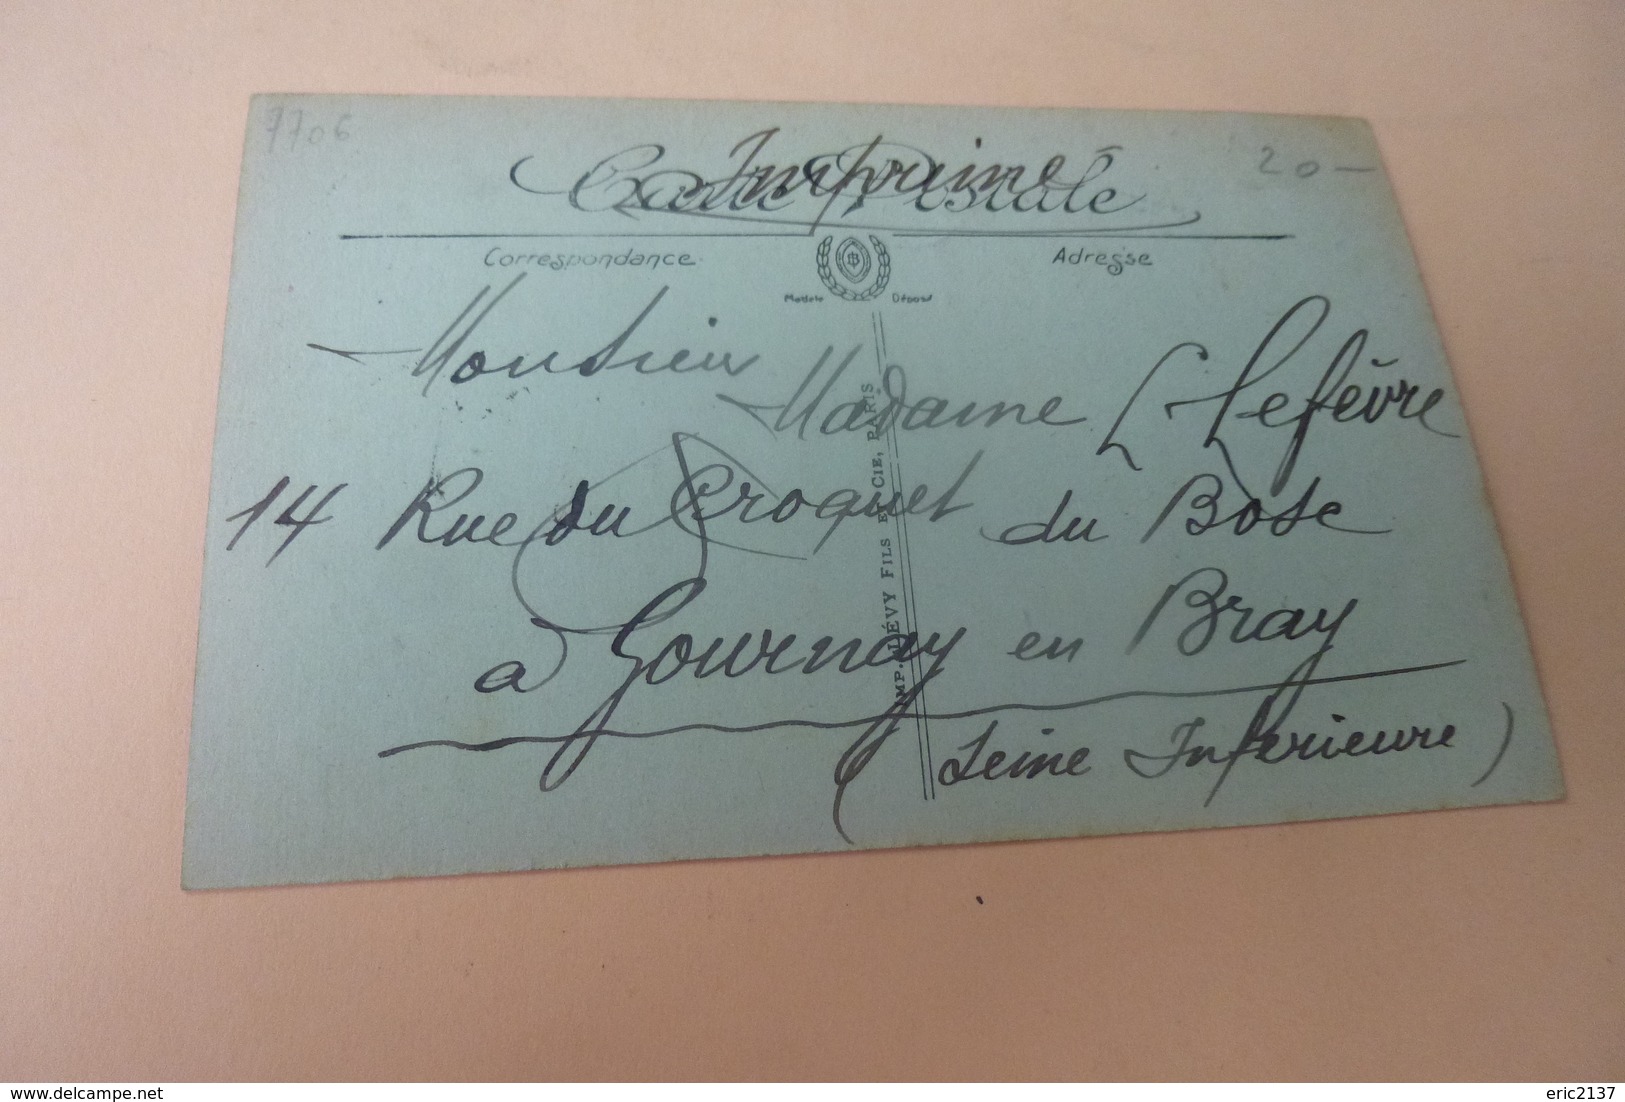 7706
20 —
Imprimé
Carte Postale
Correspondance
Adresse
Modèle Déposé
Monsieur
Madame L Lefèvre
14 Rue du Croquet du Bosc
à Gournay en Bray
(Seine Inferieure)
IMP. LÉVY FILS ET CIE, PARIS
www.delcampe.net
eric2137